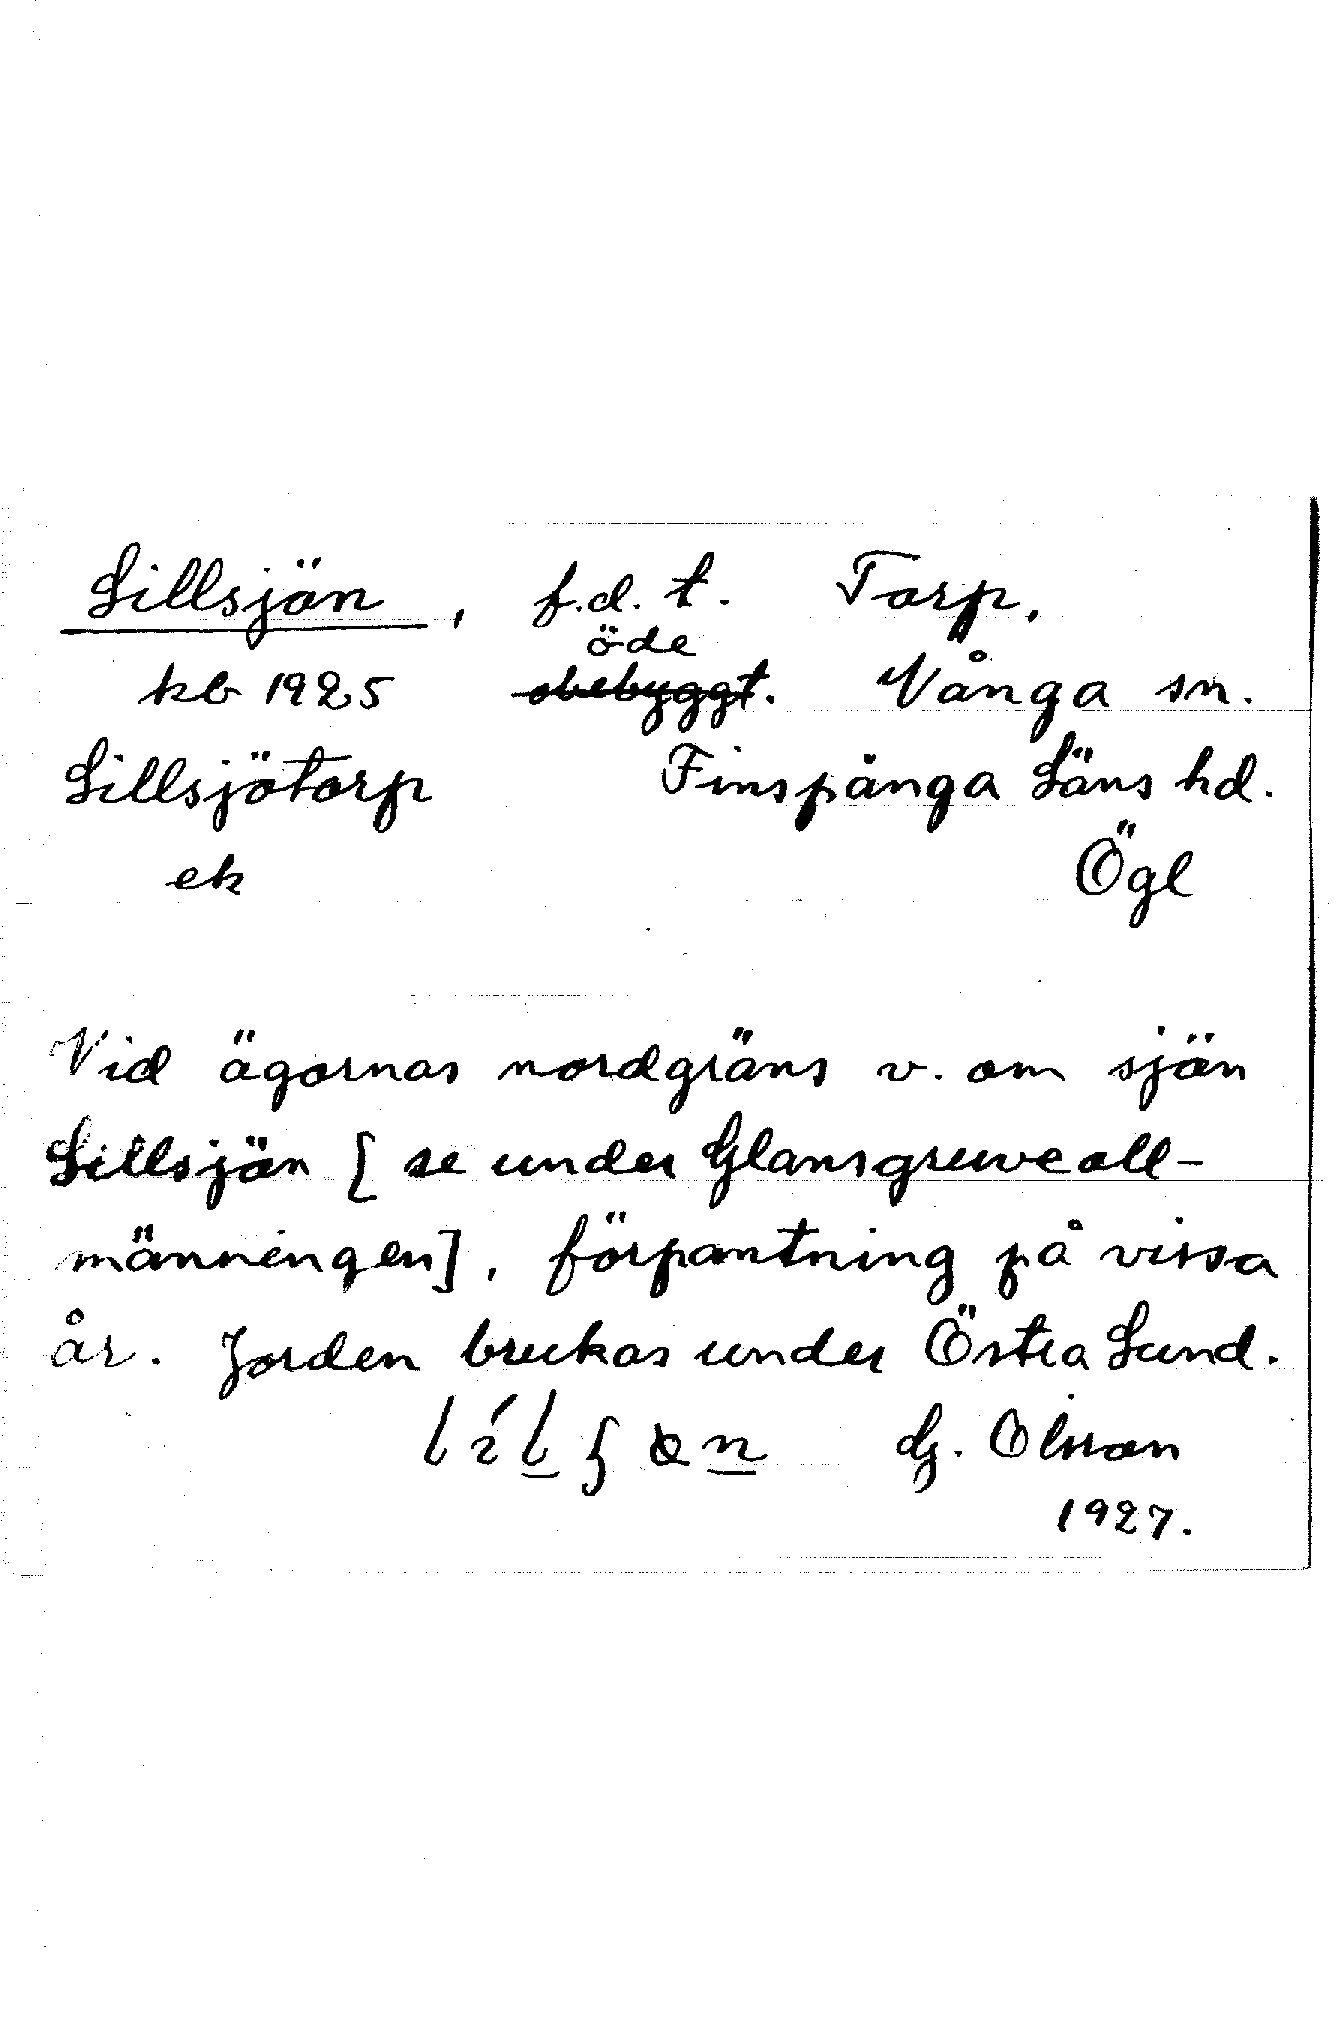 Lillsjön, f.d. t. Torp,
öde
kb 1925 obebyggt. Vånga sn.
Lillsjötorp Finspånga Läns hd.
ek Ögl
Vid ägornas nordgräns v. om sjön
Lillsjön [se under Glansgruveall-
männingen], förpantning på vissa
år. Jorden brukas under Östra Lund.
G. Olsson
1927.